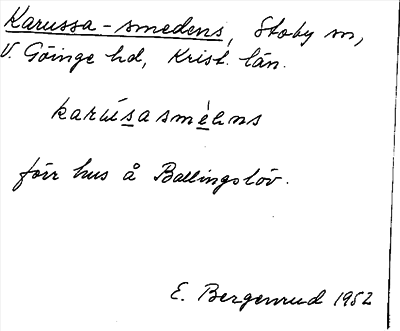 Karussa-smedens, Stoby sn,
V. Göinge hd, Krist. län.
karúsasmèns
förr hus å Ballingslöv.
E. Bergenrud 1952